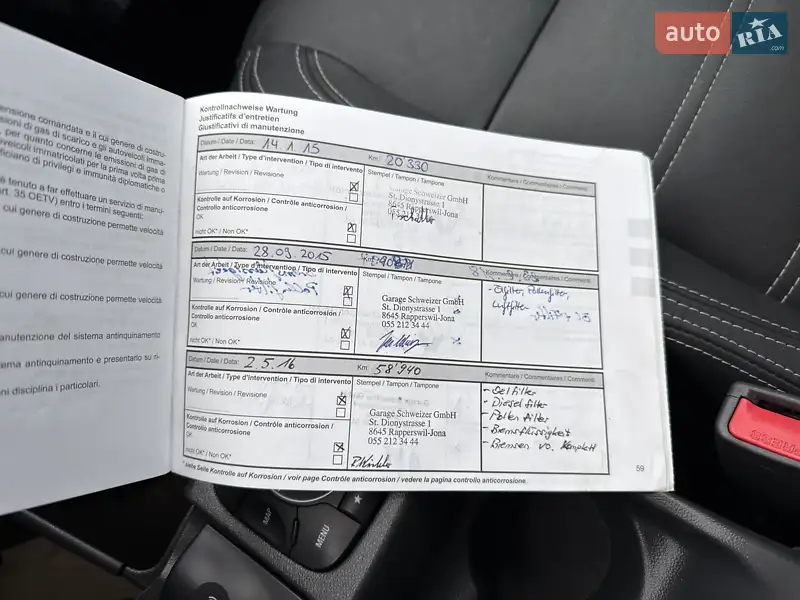 auto RIA .com
ensione comandata e il cui genere di costru-
sioni di gas di scarico e gli autoveicoli imma-
per quanto concerne le emissioni di gas di
veicoli immatricolati per la prima volta prima
ficiano di privilegi e immunità diplomatiche o
è tenuto a far effettuare un servizio di manu-
rt. 35 OETV) entro i termini seguenti:
cui genere di costruzione permette velocità
cui genere di costruzione permette velocità
cui genere di costruzione permette velocità
manutenzione del sistema antinquinamento
ema antinquinamento e presentarlo su ri-
ni disciplina i particolari.
Kontrollnachweise Wartung
Justificatifs d'entretien
Giustificativi di manutenzione
Datum / Date / Data: 14.1.15 Km: 20 330
Art der Arbeit / Type d'intervention / Tipo di intervento Stempel / Tampon / Tampone Kommentare / Commentaires / Commenti
Wartung / Revision / Revisione
Garage Schweizer GmbH
St. Dionystrasse 1
8645 Rapperswil-Jona
055 212
Kontrolle auf Korrosion / Contrôle anticorrosion /
Controllo anticorrosione
OK
nicht OK* / Non OK*
Datum / Date / Data: 28.09.2015 Km:
Art der Arbeit / Type d'intervention / Tipo di intervento Stempel / Tampon / Tampone Kommentare / Commentaires / Commenti
Wartung / Revision / Revisione
Garage Schweizer GmbH
St. Dionystrasse 1
8645 Rapperswil-Jona
055 212 34 44
- Ölfilter, Pollenfilter,
Luftfilter
Kontrolle auf Korrosion / Contrôle anticorrosion /
Controllo anticorrosione
OK
nicht OK* / Non OK*
Datum / Date / Data: 2.5.16 Km: 58'940
Art der Arbeit / Type d'intervention / Tipo di intervento Stempel / Tampon / Tampone Kommentare / Commentaires / Commenti
Wartung / Revision / Revisione
Garage Schweizer GmbH
St. Dionystrasse 1
8645 Rapperswil-Jona
055 212 34 44
- Dieselfilter
- Pollenfilter
- Bremsflüssigkeit
- Bremsen vo. komplett
Kontrolle auf Korrosion / Contrôle anticorrosion /
Controllo anticorrosione
OK
nicht OK* / Non OK*
* siehe Seite Kontrolle auf Korrosion / voir page Contrôle anticorrosion / vedere la pagina controllo anticorrosione.
59
MAP
MENU